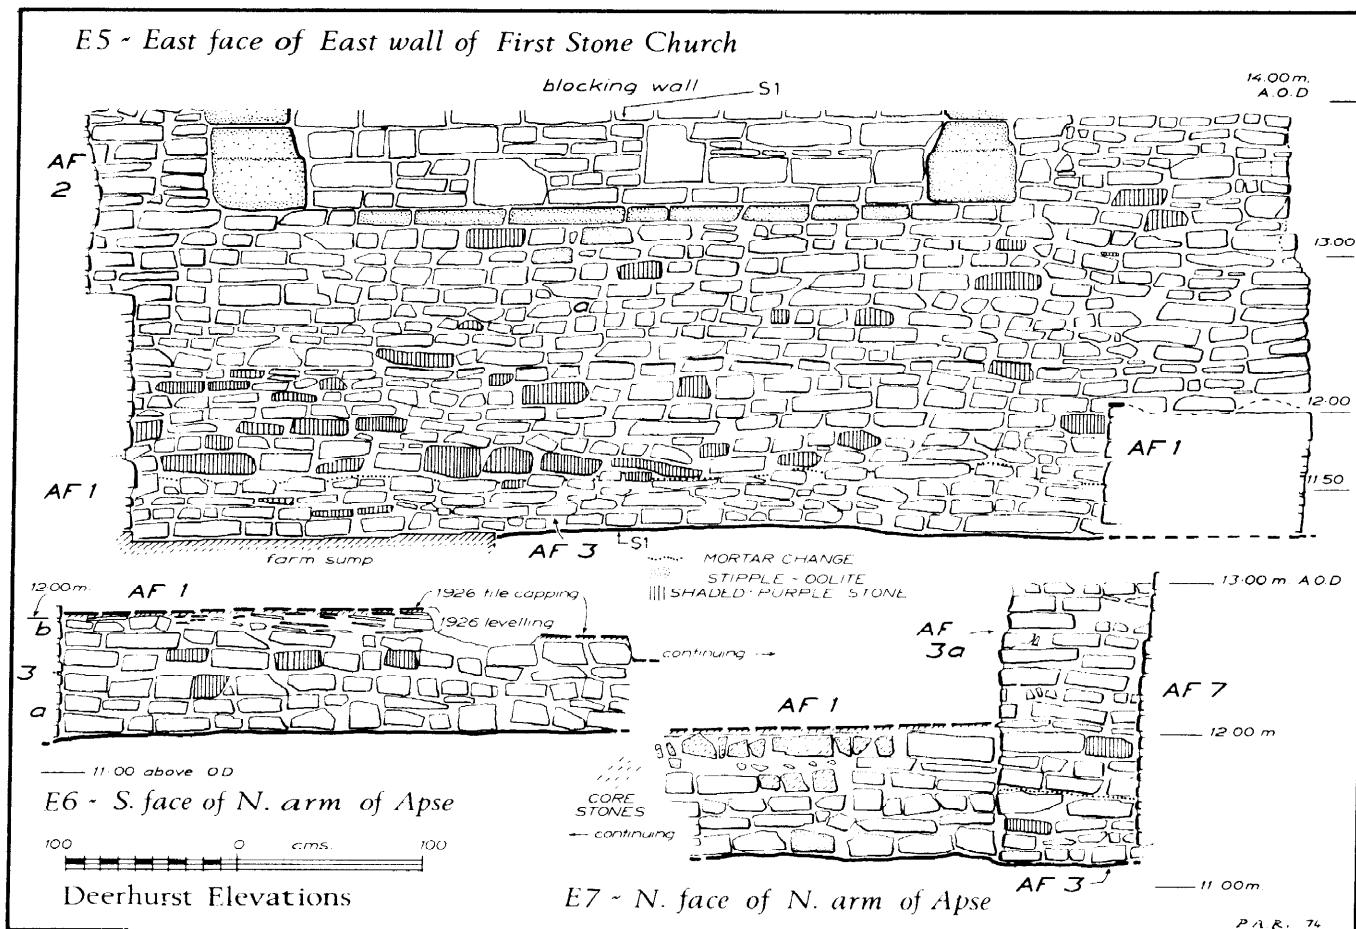 E5 - East face of East wall of First Stone Church
blocking wall
S1
14.00 m.
A.O.D
AF
2
13.00
a
12.00
AF 1
AF 1
11.50
farm sump
AF 3
S1
MORTAR CHANGE
STIPPLE - OOLITE
SHADED - PURPLE STONE
12.00m.
AF 1
b
3
a
1926 tile capping
1926 levelling
continuing
11.00 above O.D
E6 - S. face of N. arm of Apse
100 0 cms. 100
Deerhurst Elevations
13.00 m A.O.D
AF
3a
AF 7
AF 1
12.00 m
CORE
STONES
continuing
AF 3
11.00m.
E7 - N. face of N. arm of Apse
P.A.R. 74